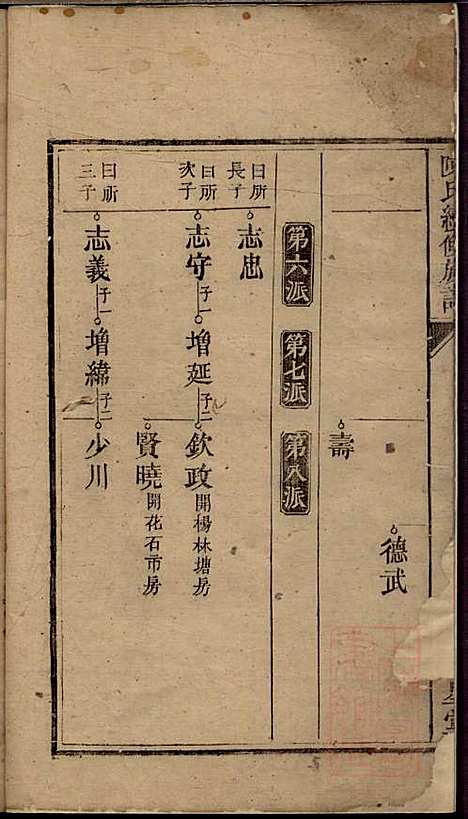 陳氏續修族譜
德武
壽
第六派 第七派 第八派
曰所長子
志忠
曰所次子
志守 子一 增延 子二 欽政 開楊林塘房
賢曉 開花石市房
曰所三子
志義 子一 增緯 子二 少川